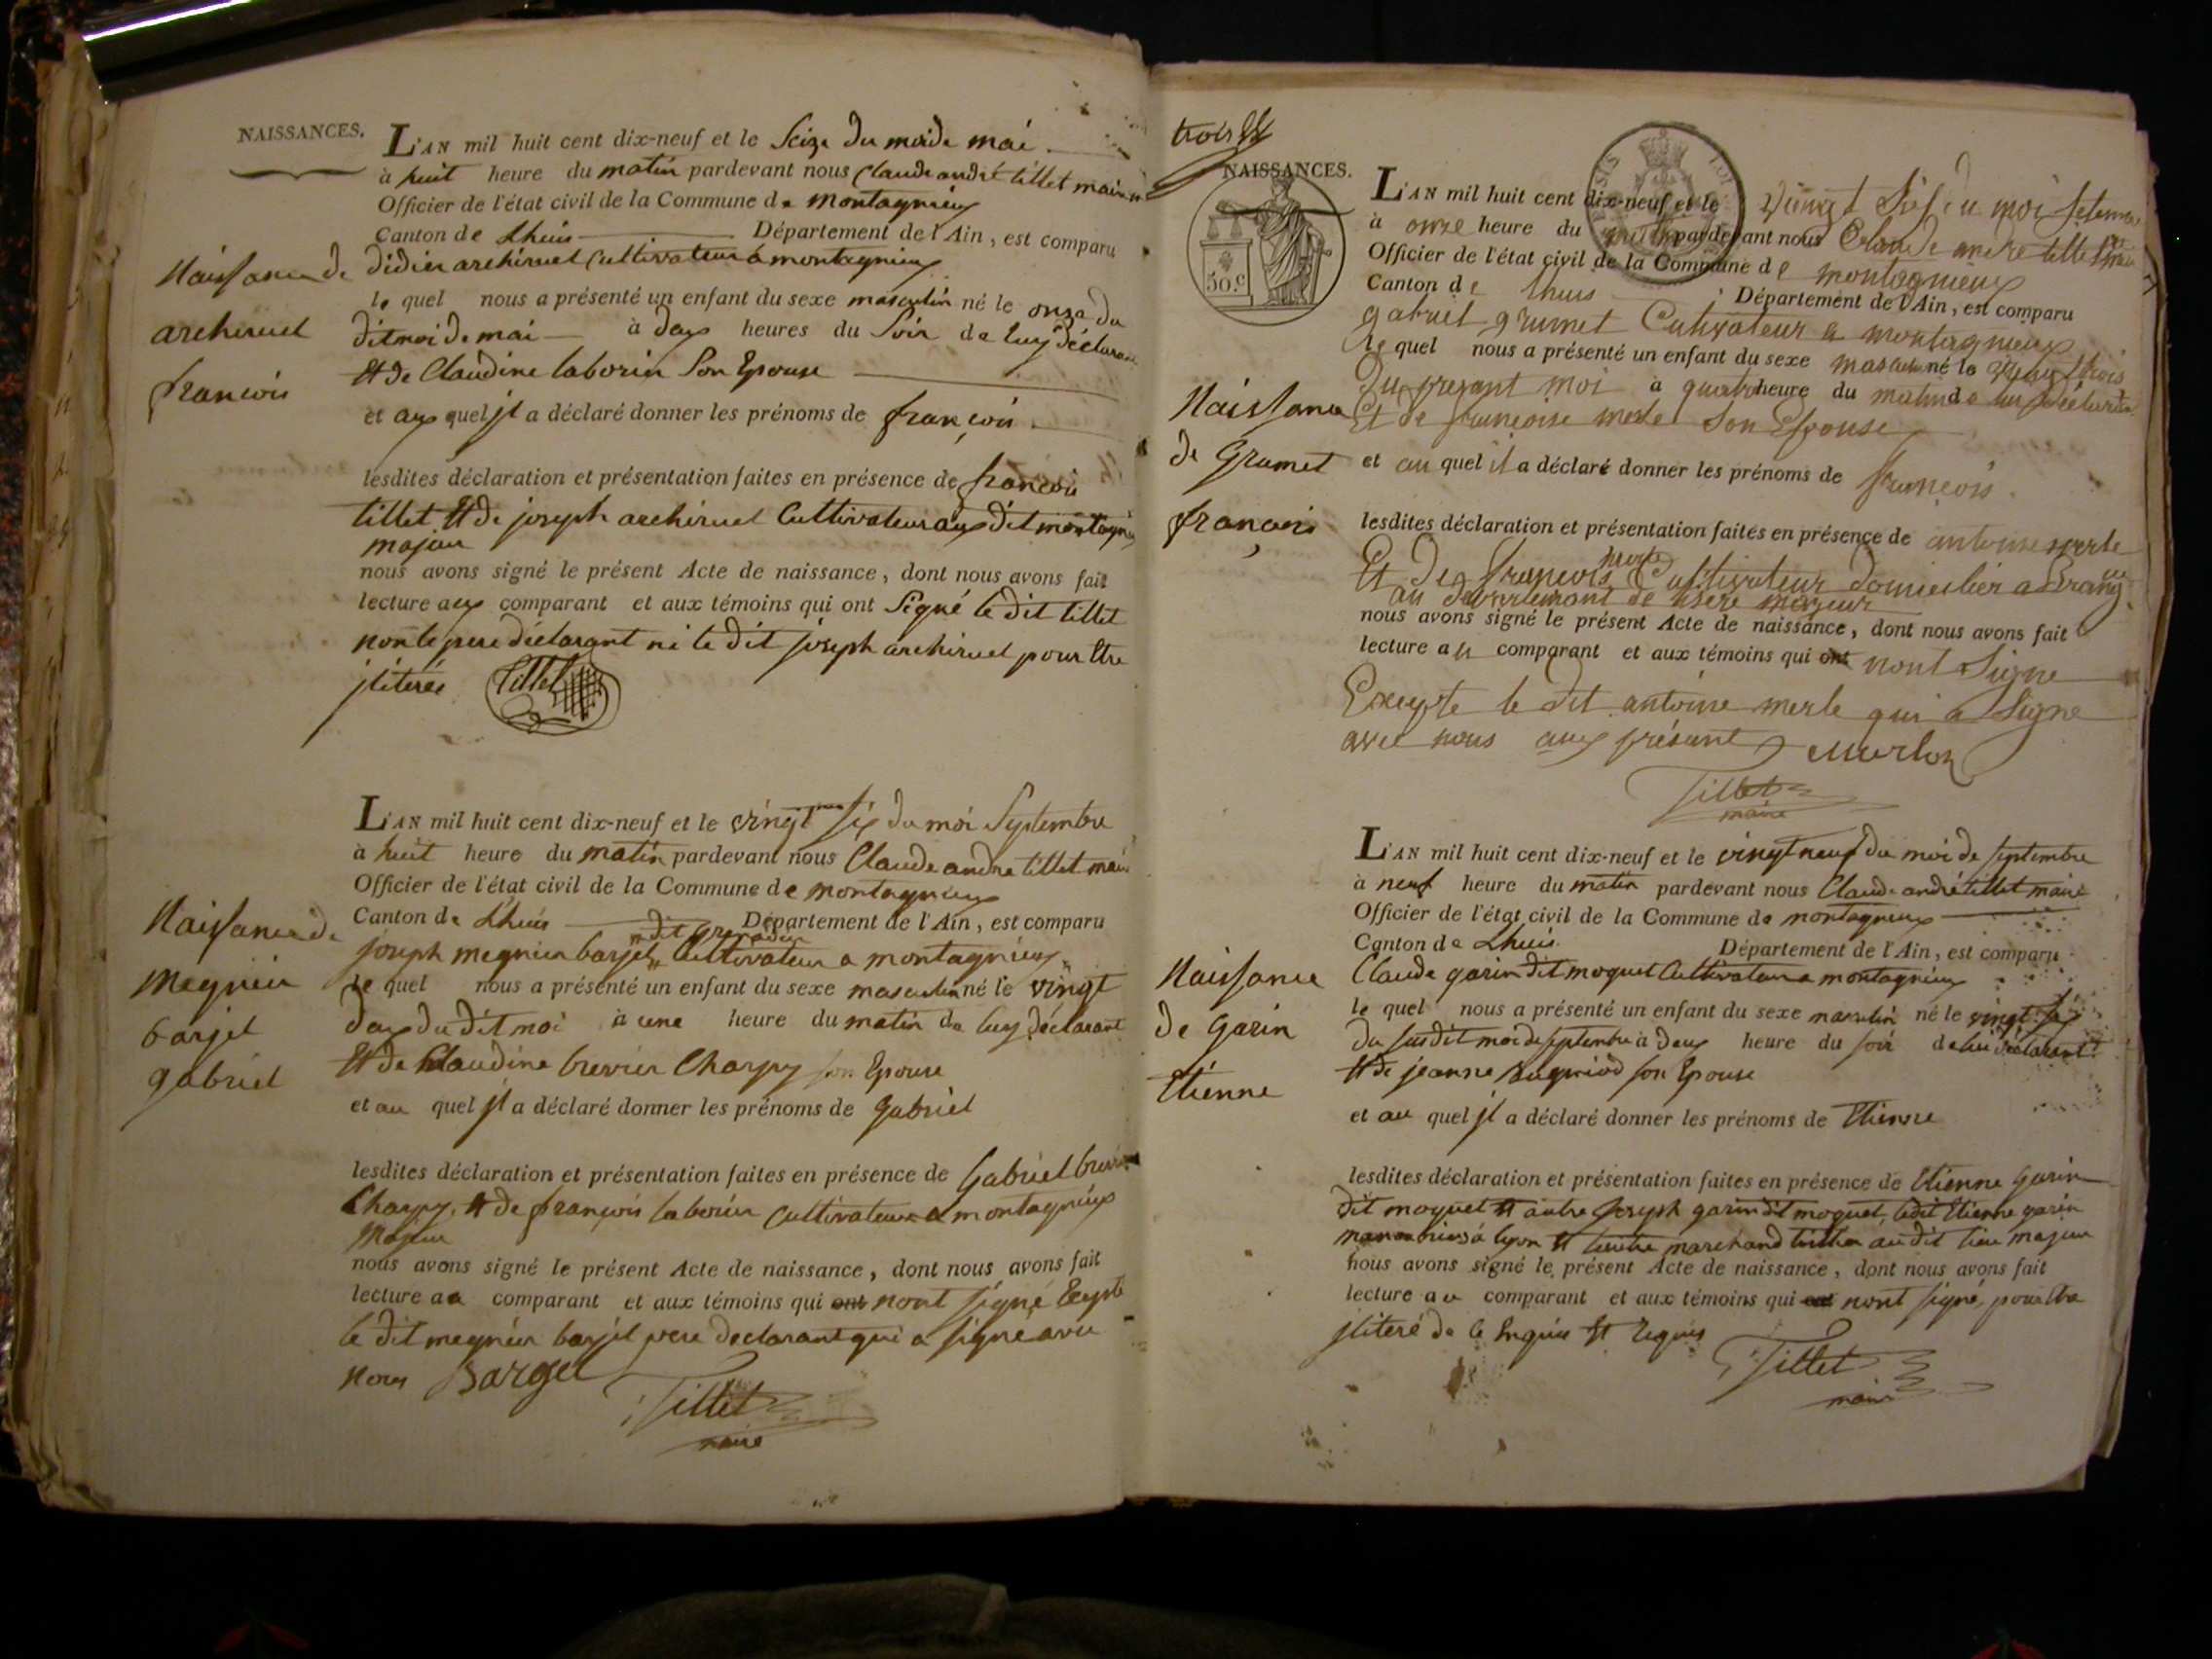 NAISSANCES.
L'AN mil huit cent dix-neuf et le Seize du moi de mai
à huit heure du matin pardevant nous Claude andré tillet maire
Officier de l'état civil de la Commune de montagnieu
Canton de Lhuis Département de l'Ain, est comparu
didier archiruel Cultivateur a montagnieu
le quel nous a présenté un enfant du sexe masculin né le onze du
dit moi de mai à deux heures du Soir de luy déclarant
Et de Claudine laborier Son Epouse
et au quel jl a déclaré donner les prénoms de françois
lesdites déclaration et présentation faites en présence de françois
tillet Et de joseph archiruel Cultivateur au dit montagnieu
majeur
nous avons signé le présent Acte de naissance, dont nous avons fait
lecture aux comparant et aux témoins qui ont Signé le dit tillet
non le pere déclarant ni le dit joseph archiruel pour Etre
jliterés Tillet
Naissance de
archiruel
françois
L'AN mil huit cent dix-neuf et le vingt six du moi Septembre
à huit heure du matin pardevant nous Claude andre tillet maire
Officier de l'état civil de la Commune de montagnieu
Canton de Lhuis Département de l'Ain, est comparu
dit grenadier
joseph megnier barjel Cultivateur a montagnieu
le quel nous a présenté un enfant du sexe masculin né le vingt
deux du dit moi à une heure du matin de luy déclarant
Et de Claudine brevier Charpy son Epouse
et au quel jl a déclaré donner les prénoms de Gabriel
lesdites déclaration et présentation faites en présence de Gabriel brevier
Charpy Et de françois laborier Cultivateur a montagnieu
Majeur
nous avons signé le présent Acte de naissance, dont nous avons fait
lecture au comparant et aux témoins qui ont nont signé Excepté
le dit megnier barjel pere declarant qui a signé avec
nous Bargel
Tillet
maire
Naissance de
megnier
barjel
gabriel
trois
NAISSANCES.
50.c
L'AN mil huit cent dix-neuf et le vingt Six du moi Setembre
à onze heure du matin pardevant nous Claude andre tillet maire
Officier de l'état civil de la Commune de montagnieux
Canton de lhuis Département de l'Ain, est comparu
gabriel grumet Cultivateur a montagnieux
le quel nous a présenté un enfant du sexe masculin né le vingt trois
Du presant moi à quatre heure du matin de lui déclarant
Et de françoise merle Son Epouse
et au quel il a déclaré donner les prénoms de françois
lesdites déclaration et présentation faites en présence de antoine merle
Et De françois merle Cultivateur domicilier a Brangue
au departemant de lisere majeur
nous avons signé le présent Acte de naissance, dont nous avons fait
lecture au comparant et aux témoins qui ont nont Signe
Excepte le dit antoine merle qui a Signe
avec nous aux présant
Tillet
maire
Naissance
de Grumet
françois
L'AN mil huit cent dix-neuf et le vingt neuf du moi de septembre
à neuf heure du matin pardevant nous Claude andré tillet maire
Officier de l'état civil de la Commune de montagnieux
Canton de Lhuis Département de l'Ain, est comparu
Claude garin dit moquet Cultivateur a montagnieu
le quel nous a présenté un enfant du sexe masculin né le vingt six
du susdit moi de septembre à deux heure du soir de lui déclarant
Et de jeanne bugniod son Epouse
et au quel jl a déclaré donner les prénoms de Etienne
lesdites déclaration et présentation faites en présence de Etienne garin
dit moquet Et autre Joseph garin dit moquet, ledit Etienne garin
à lyon Et lautre marchand au dit lieu majeur
nous avons signé le présent Acte de naissance, dont nous avons fait
lecture au comparant et aux témoins qui ont nont signé, pour Etre
jliteré de ce Enquis Et requis
Tillet
maire
Naissance
de Garin
Etienne